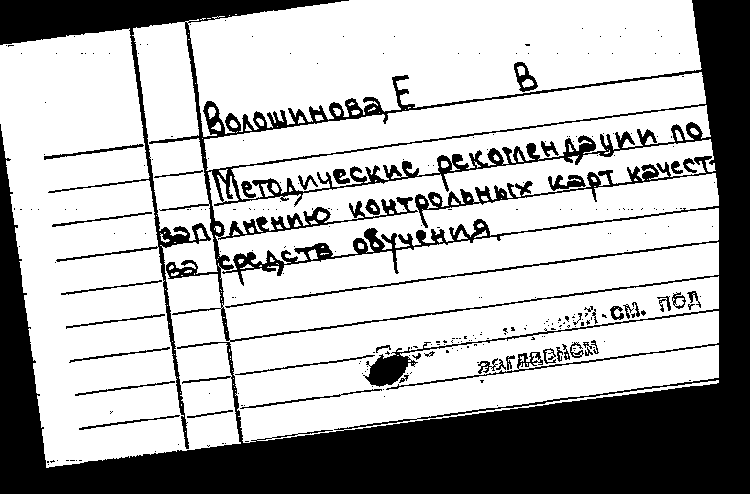 Волошинова, Е В
Методические рекомендации по
заполнению контрольных карт качест-
ва средств обучения.
см. под
заглавием